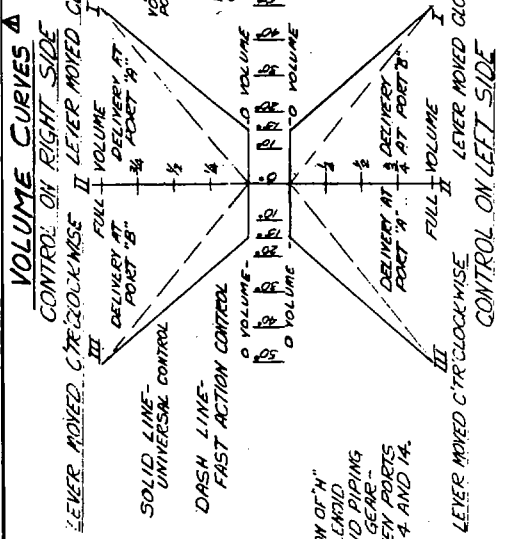 VOLUME CURVES
CONTROL ON RIGHT SIDE
LEVER MOVED C'TR'CLOCKWISE
II
LEVER MOVED
III
I
FULL VOLUME
DELIVERY AT
PORT "B"
DELIVERY AT
PORT "A"
3/4
1/2
1/4
SOLID LINE-
UNIVERSAL CONTROL
DASH LINE-
FAST ACTION CONTROL
0 VOLUME-
0 VOLUME
50° 40° 30° 20° 13° 10° 0° 10° 13° 20° 30° 40°
0 VOLUME
0 VOLUME
1/4
1/2
3/4
DELIVERY AT
PORT "A"
DELIVERY
AT PORT "B"
FULL VOLUME
III
II
I
LEVER MOVED C'TR'CLOCKWISE
LEVER MOVED
CONTROL ON LEFT SIDE
OF "H"
PIPING
GEAR-
PORTS
4 AND 14.